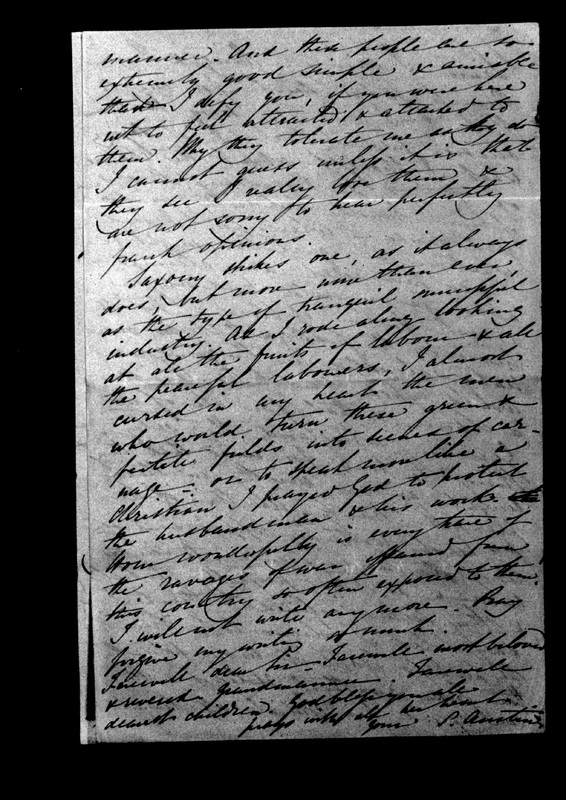 manner. And these people are so
extremely good simple & amiable
that I defy you, if you were here
not to feel attracted & attached to
them. Why they tolerate me as they do
I cannot guess unless it is that
they see I really love them &
are not sorry to hear perfectly
frank opinions.
Saxony strikes one, as it always
does, but more now than ever
as the type of tranquil successful
industry. As I rode along looking
at all the fruits of labour & all
the peaceful labourers, I almost
cursed in my heart the men
who would turn these green &
fertile fields into scenes of car-
nage - or to speak more like a
Christian I prayed God to protect
the husbandman & his work.
How wonderfully is every trace of
the ravages of war effaced from
this country so often exposed to them.
I will not write any more. Pray
forgive my writing so much.
Farewell dear Sir. Farewell most beloved
& revered grandmamma. Farewell
dearest children. God bless you all
prays with all her heart
Your S. Austin